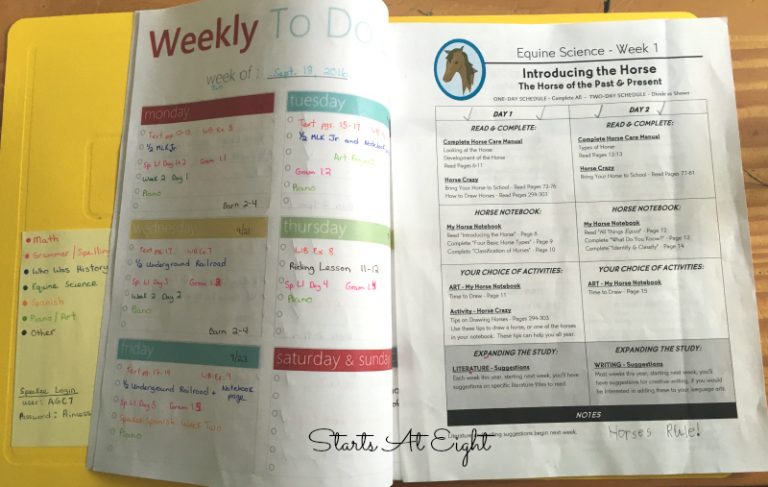 Weekly To Do
week of : Sept. 19, 2016
monday
Text pgs 10-13 WB Ex 8
1/2 MLK Jr.
Sp. L1 Day 1+2 Gram 1.1
Week 2 Day 1
Piano
Barn 2-4
tuesday
Text pgs. 15-17 WB
1/2 MLK Jr and Notebook
Art Project
Gram 1.2
Piano
wednesday 9/21
Text pg. 17 WB Ex 7
1/2 Underground Railroad
Sp. L1 Day 3 Gram 1.3
Week 2 Day 2
Piano
Barn 2-4
thursday
WB Ex 8
Riding Lesson 11-12
Sp. L1 Day 4 Gram 1.
Piano
friday 9/23
Text pg. 17-19 WB Ex. 9
1/2 Underground Railroad + Notebook
page
Sp. L1 Day 5 Gram 1.
Speaker Spanish Week Two
Piano
saturday & sunday
Math
Grammar/Spelling
Who Was History
Equine Science
Spanish
Piano/Art
Other
Login
user: AGC7
Password: Princess
Equine Science - Week 1
Introducing the Horse
The Horse of the Past & Present
ONE-DAY SCHEDULE - Complete All - TWO-DAY SCHEDULE - Divide as Shown
DAY 1
READ & COMPLETE:
Complete Horse Care Manual
Looking at the Horse
Development of the Horse
Read Pages 6-11
Horse Crazy
Bring Your Horse to School - Read Pages 72-76
How to Draw Horses - Read Pages 294-303
HORSE NOTEBOOK:
My Horse Notebook
Read "Introducing the Horse" - Page 8
Complete "Four Basic Horse Types" - Page 9
Complete "Classification of Horses" - Page 10
YOUR CHOICE OF ACTIVITIES:
ART - My Horse Notebook
Time to Draw - Page 11
Activity - Horse Crazy
Tips on Drawing Horses - Pages 294-303
Use these tips to draw a horse, or one of the horses
in your notebook. These tips can help you all year.
EXPANDING THE STUDY:
LITERATURE - Suggestions
Each week this year, starting next week, you'll have
suggestions on specific literature titles to read.
DAY 2
READ & COMPLETE:
Complete Horse Care Manual
Types of Horse
Read Pages 12-13
Horse Crazy
Bring Your Horse to School - Read Pages 77-81
HORSE NOTEBOOK:
My Horse Notebook
Read "All Things Equus" - Page 12
Complete "What Do You Know?" - Page 13
Complete "Identify & Classify" - Page 14
YOUR CHOICE OF ACTIVITIES:
ART - My Horse Notebook
Time to Draw - Page 15
EXPANDING THE STUDY:
WRITING - Suggestions
Most weeks this year, starting next week, you'll have
suggestions for creative writing, if you would
be interested in adding these to your language arts.
NOTES
Literature suggestions begin next week.
Horses Rule!
Starts At Eight